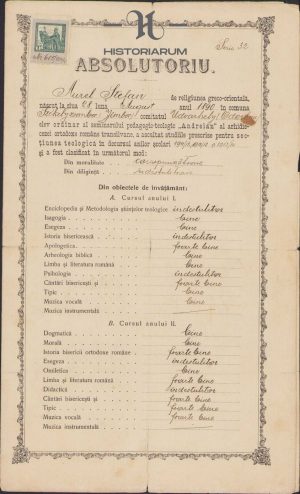 HISTORIARUM
Serie 32
ABSOLUTORIU.
Aurel Stefan
de religiunea greco-orientală,
născut la ziua 28 luna August anul 1890 în comuna
comitatul Udvarhely
elev ordinar al seminarului pedagogic-teologic „Andreian” al archidie-
cezei ortodoxe române transilvane, a ascultat studiile prescrise pentru
secțiunea teologică în decursul anilor școlari
și a fost clasificat în următorul mod:
Din moralitate
Din diligință
Din obiectele de învățământ:
A. Cursul anului I.
Enciclopedia și Metodologia științelor teologice îndestulitor
Isagogia bine
Exegeza bine
Istoria bisericească îndestulitor
Apologetica foarte bine
Archeologia biblică bine
Limba și literatura română bine
Psihologia îndestulitor
Cântări bisericești și foarte bine
Tipic bine
Muzica vocală bine
Muzica instrumentală
B. Cursul anului II.
Dogmatică bine
Morală bine
Istoria bisericii ortodoxe române foarte bine
Exegeza îndestulitor
Omiletica bine
Limba și literatura română foarte bine
Didactică îndestulitor
Cântări bisericești și foarte bine
Tipic foarte bine
Muzica vocală foarte bine
Muzica instrumentală